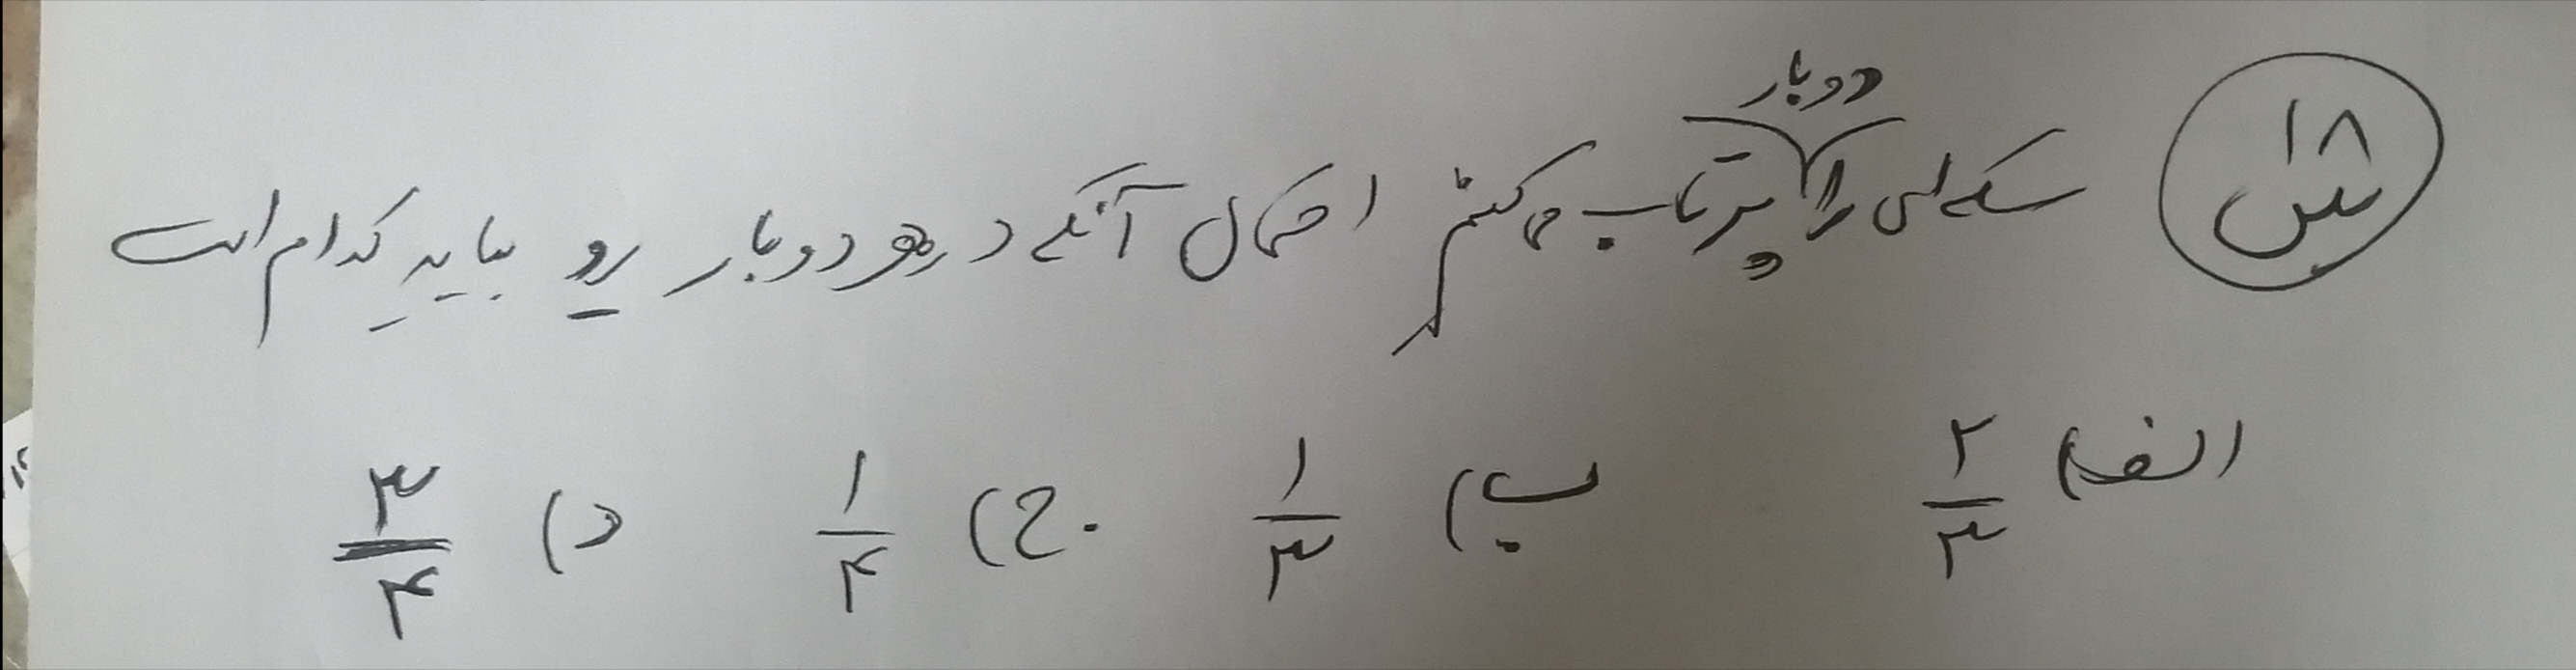 دوبار
ش ۱۸ سکه ای را پرتاب می کنیم احتمال آنکه در هر دوبار رو بیاید کدام است
الف) ۲/۳ ب) ۱/۳ ج) ۱/۴ د) ۳/۴